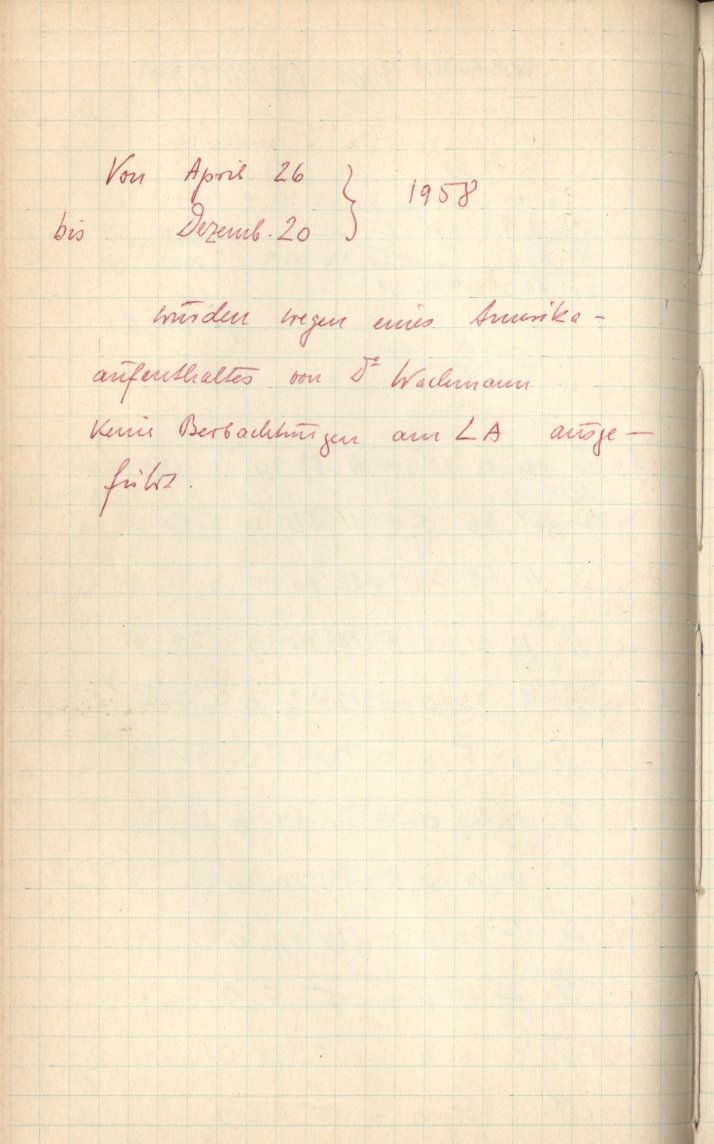 Von April 26 } 1958
bis Dezemb. 20
wurden wegen eines Amerika-
aufenthaltes von Dr Wachmann
keine Beobachtungen am LA ausge-
führt.